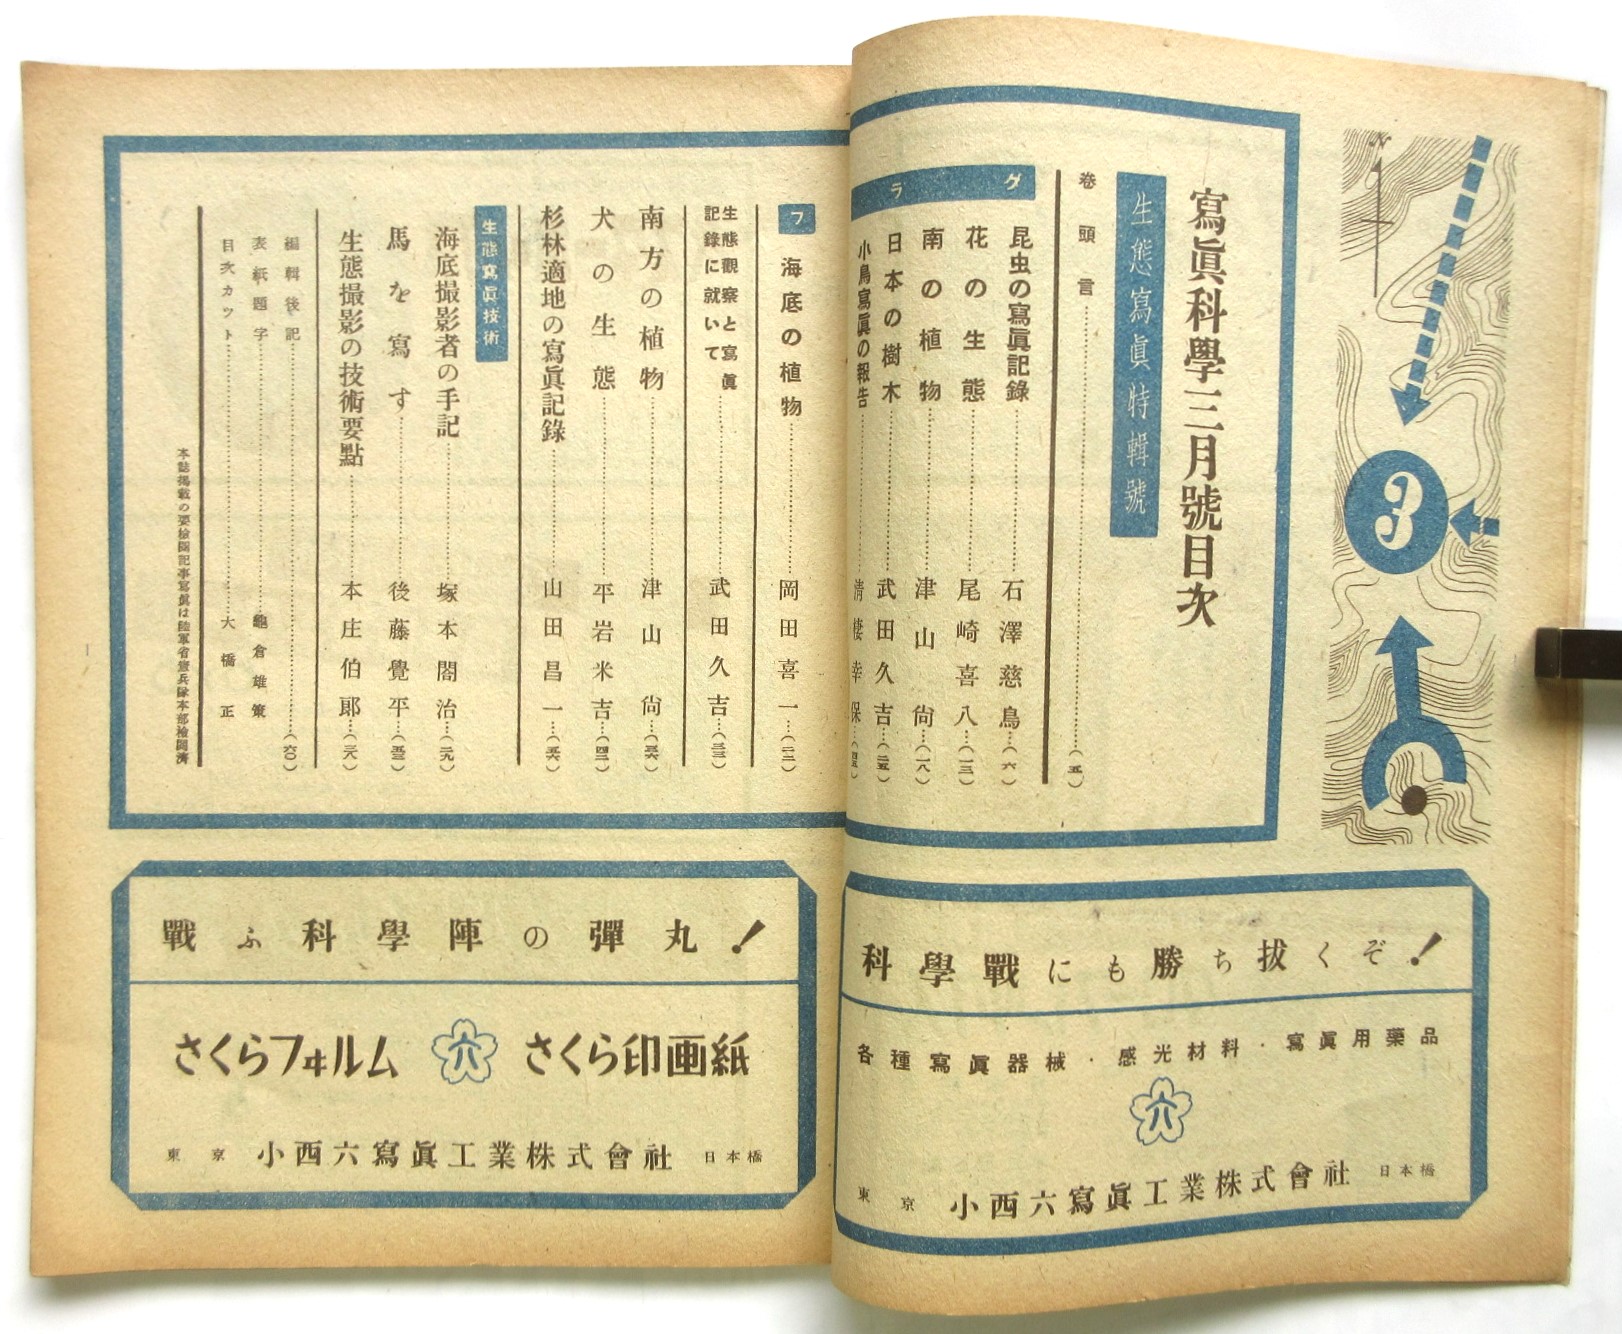 寫眞科學三月號目次
生態寫眞特輯號
卷頭言…(五)
グラフ
昆虫の寫眞記錄…石澤慈鳥…(六)
花の生態…尾崎喜八…(一三)
南の植物…津山尙…(一八)
日本の樹木…武田久吉…(二五)
小鳥寫眞の報告…淸棲幸保…(四五)
海底の植物…岡田喜一…(二二)
生態觀察と寫眞
記錄に就いて…武田久吉…(三三)
南方の植物…津山尙…(三六)
犬の生態…平岩米吉…(四二)
杉林適地の寫眞記錄…山田昌一…(五六)
生態寫眞技術
海底撮影者の手記…塚本閤治…(二九)
馬を寫す…後藤覺平…(五三)
生態撮影の技術要點…本庄伯郞…(三八)
編輯後記…(六〇)
表紙題字…龜倉雄策
目次カット…大橋正
本誌揭載の要檢閱記事寫眞は陸軍省憲兵隊本部檢閱濟
N
3
科學戰にも勝ち拔くぞ!
各種寫眞器械・感光材料・寫眞用藥品
六
東京 小西六寫眞工業株式會社 日本橋
戰ふ科學陣の彈丸!
さくらフヰルム 六 さくら印画紙
東京 小西六寫眞工業株式會社 日本橋